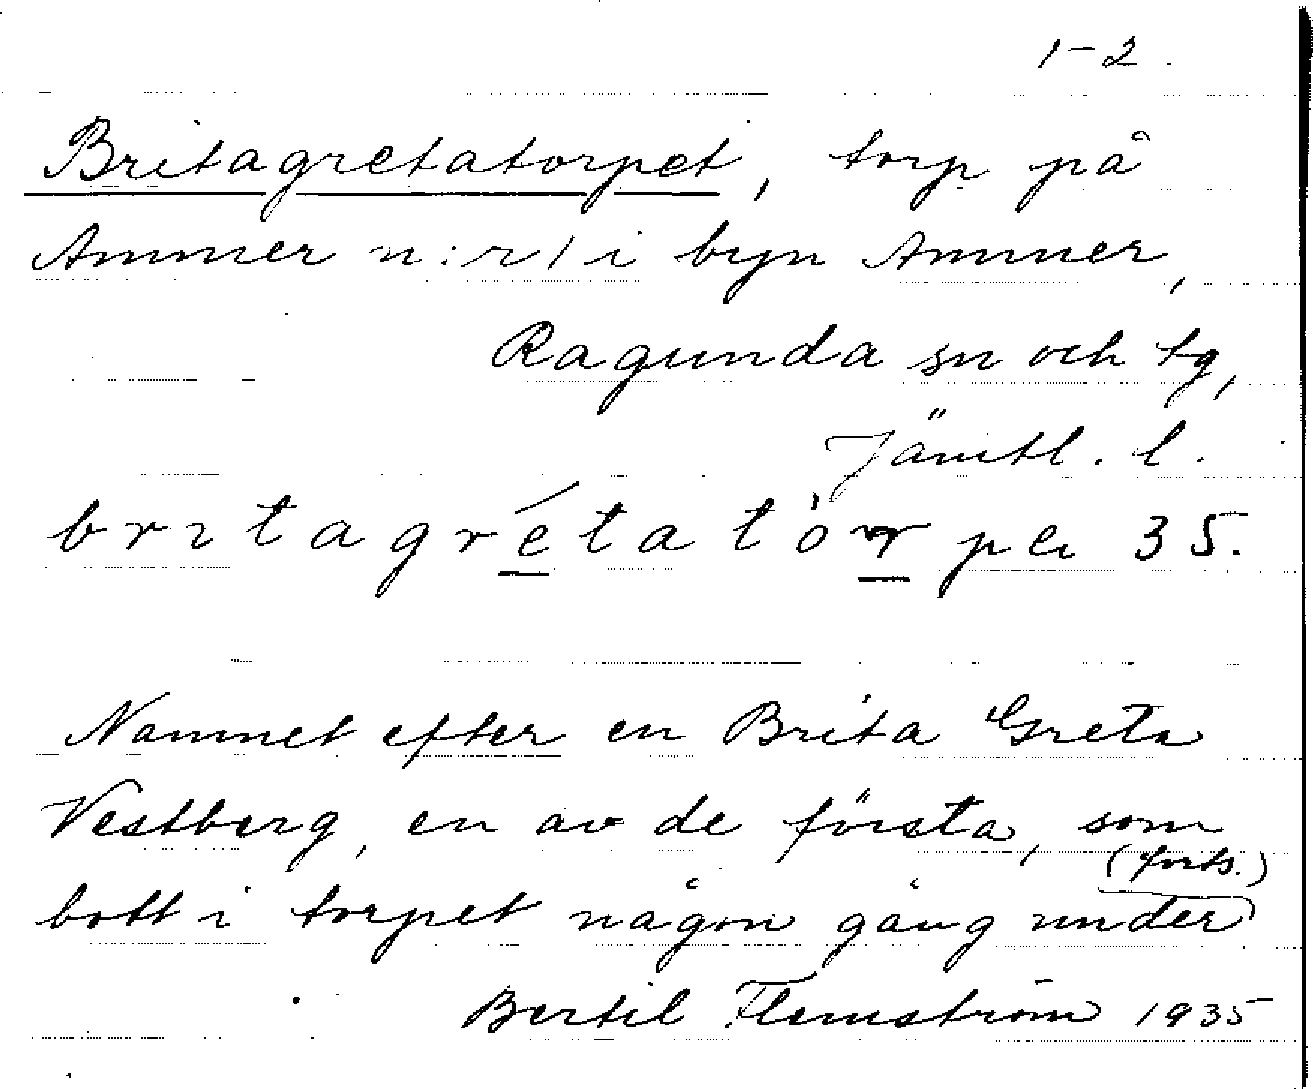 1-2.
Britagretatorpet, torp på
Ammer n:r 1 i byn Ammer,
Ragunda sn och tg,
Jämtl. l.
brıtagrétatòrpeı 35.
Namnet efter en Brita Greta
Vestberg, en av de första, som
(forts.)
bott i torpet någon gång under
Bertil Flemström 1935